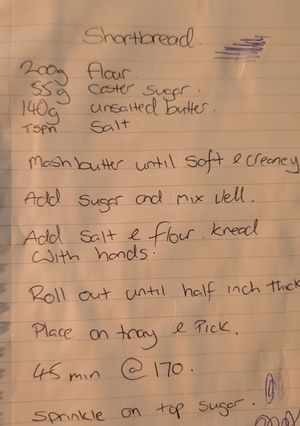 Shortbread.
200g flour.
55g caster sugar.
140g unsalted butter.
Tspn salt
Mash butter until soft & creamey
Add sugar and mix well.
Add salt & flour. knead
with hands.
Roll out until half inch thick
Place on tray & Pick.
45 min @ 170.
Sprinkle on top sugar.